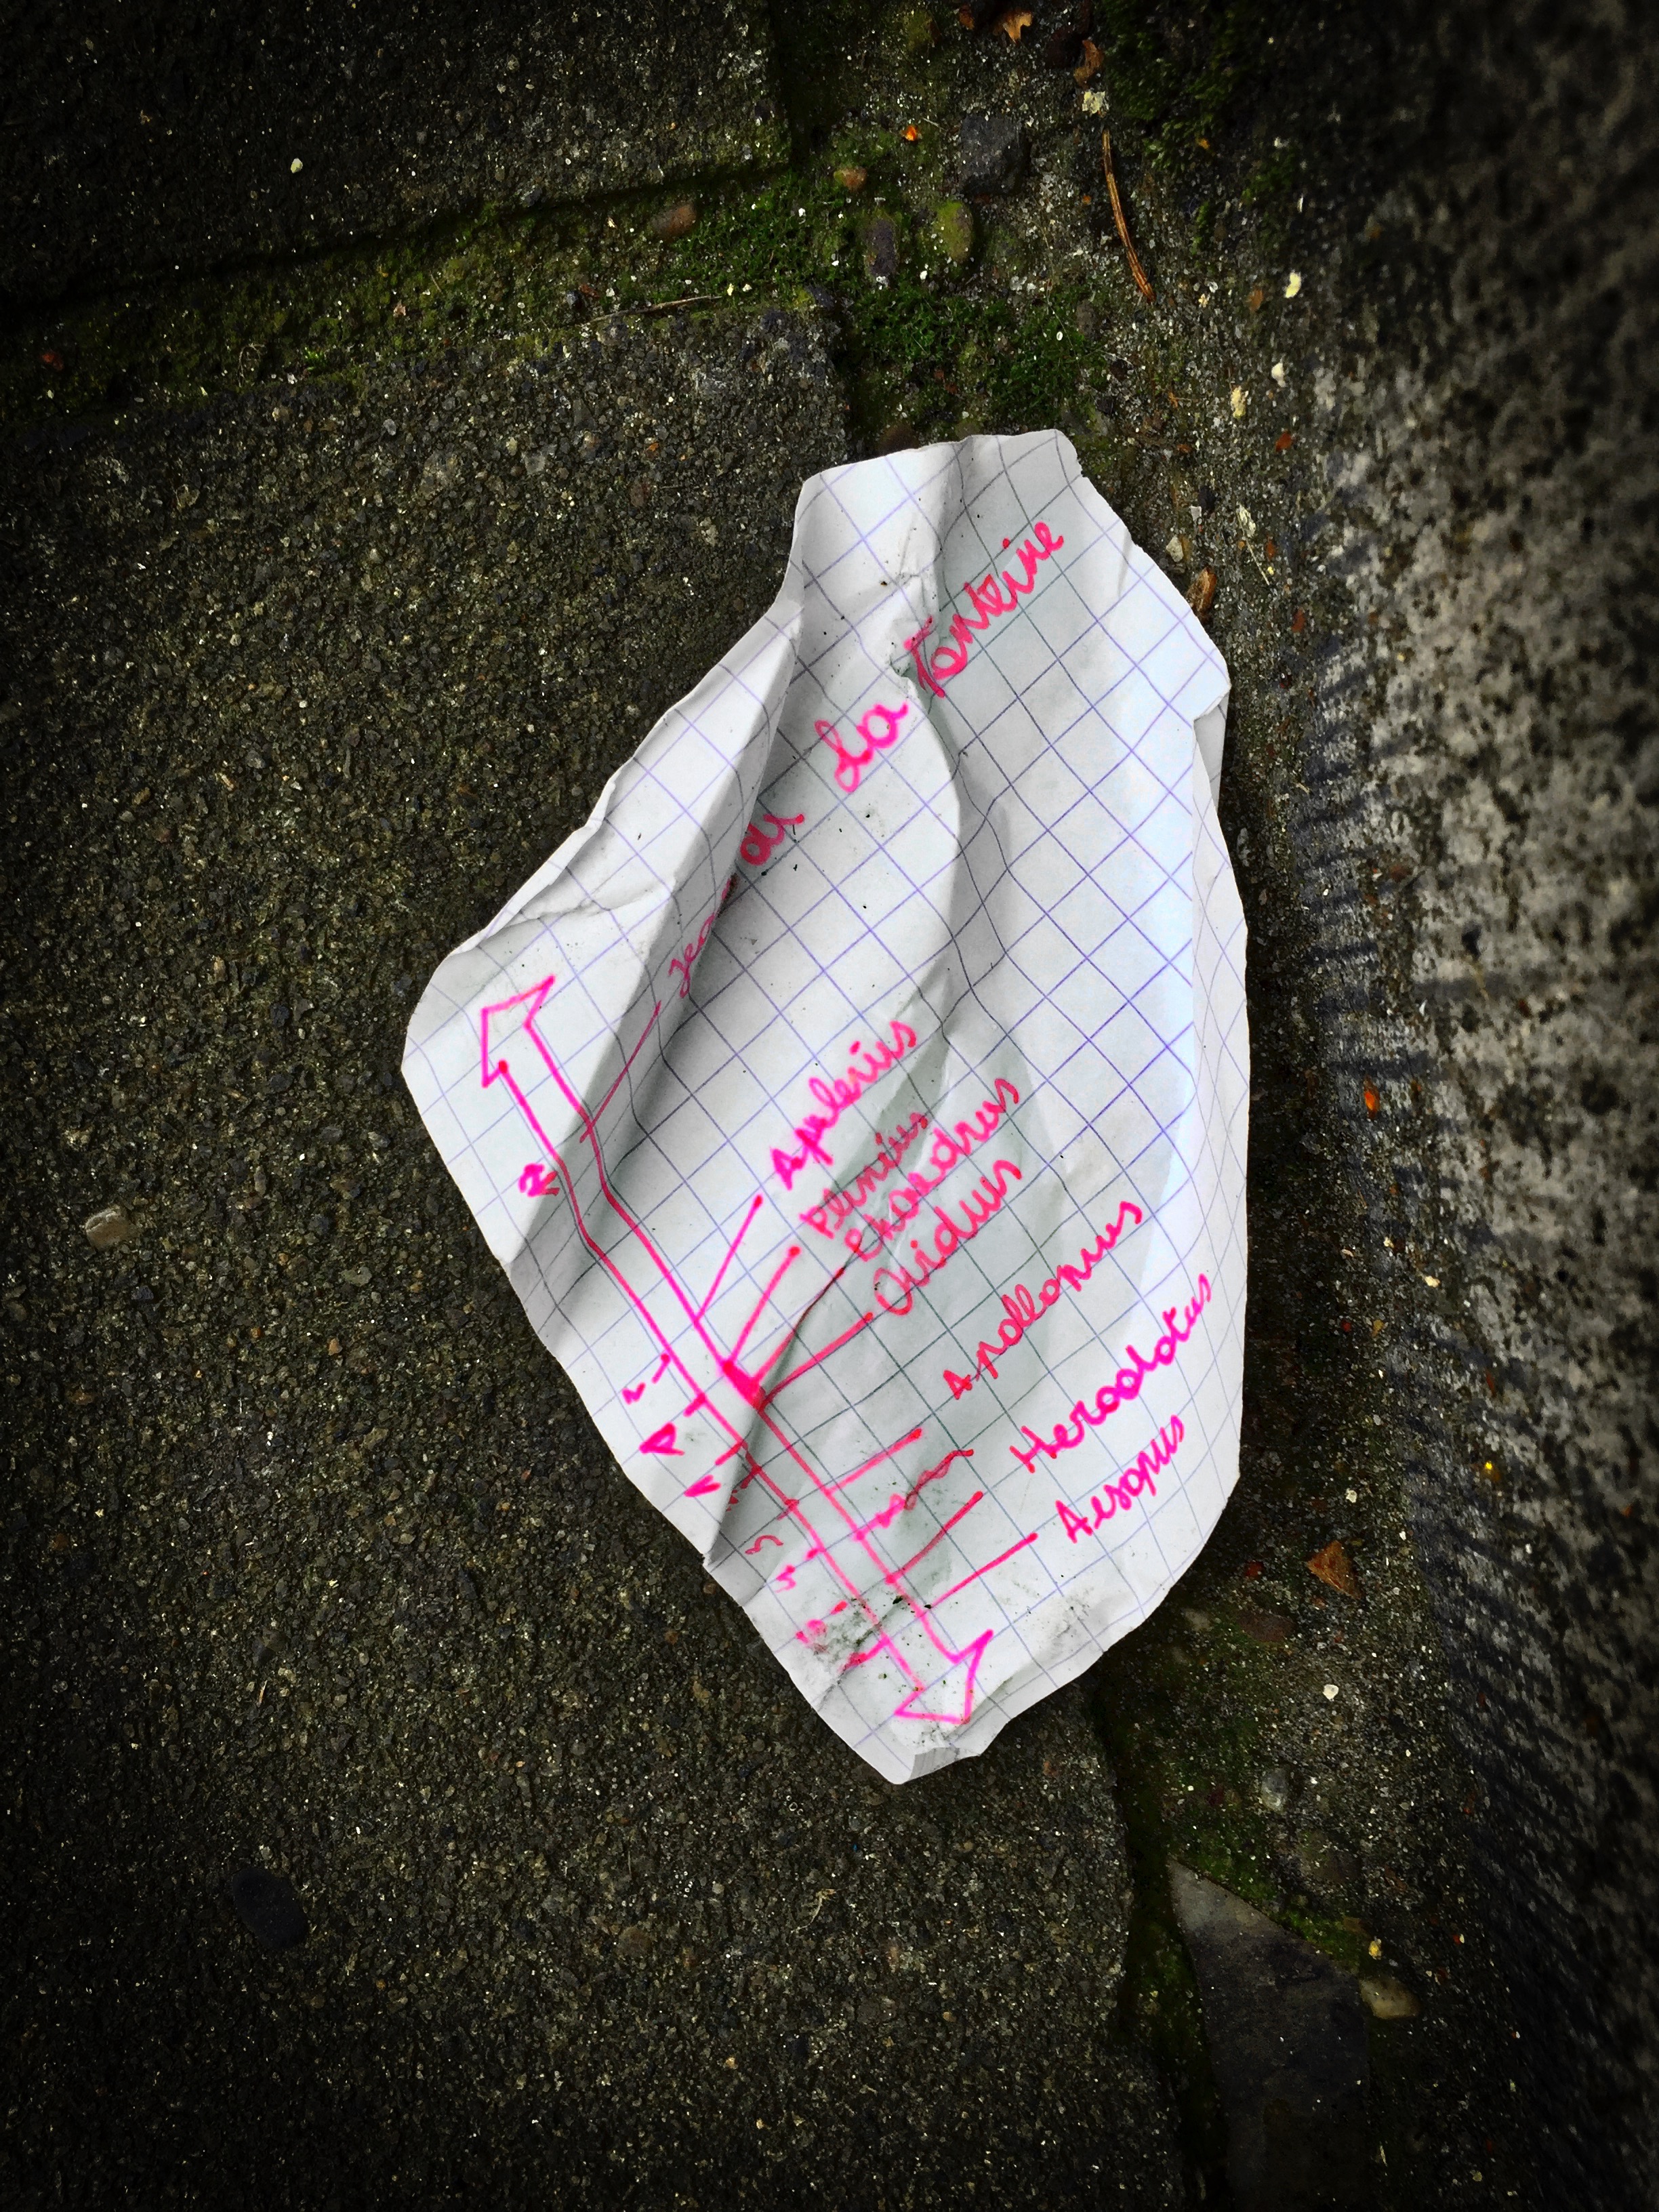 jean de La Fonteine
Apuleius
Plinius
Phaedrus
Ovidius
Apollonius
Herodotus
Aesopus